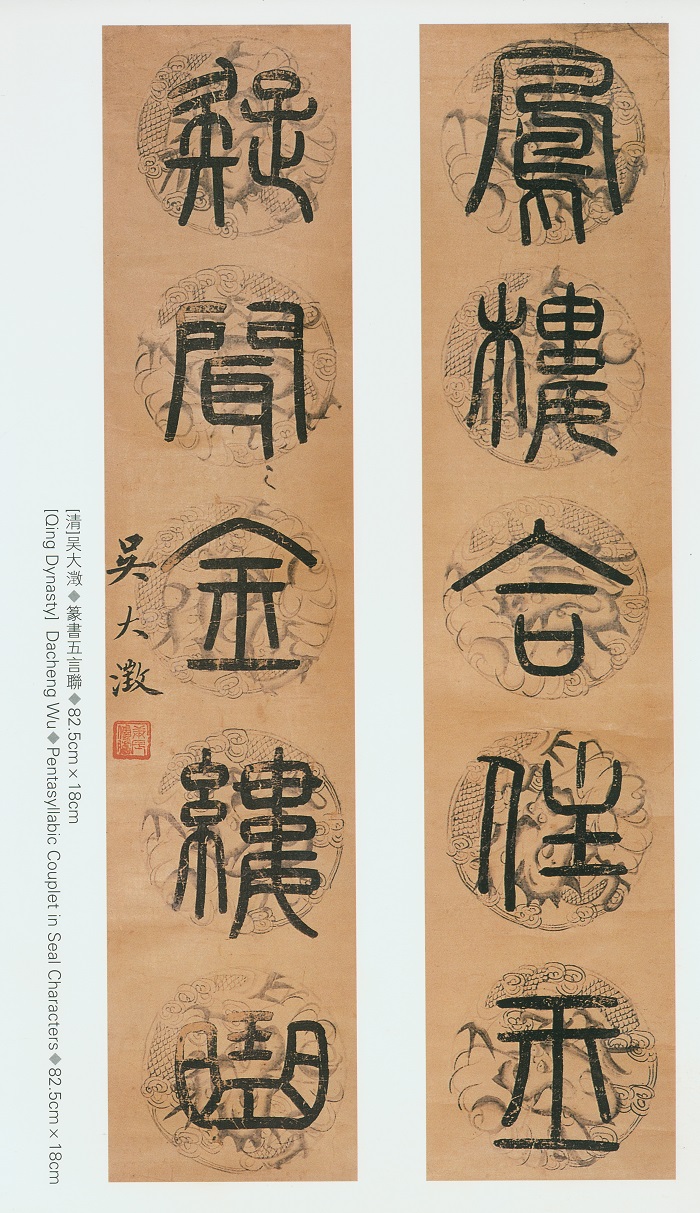 鳳樓合住
聞金縷
吳大澂
[清]吳大澂◆篆書五言聯◆82.5cm×18cm
[Qing Dynasty] Dacheng Wu◆Pentasyllabic Couplet in Seal Characters◆82.5cm×18cm